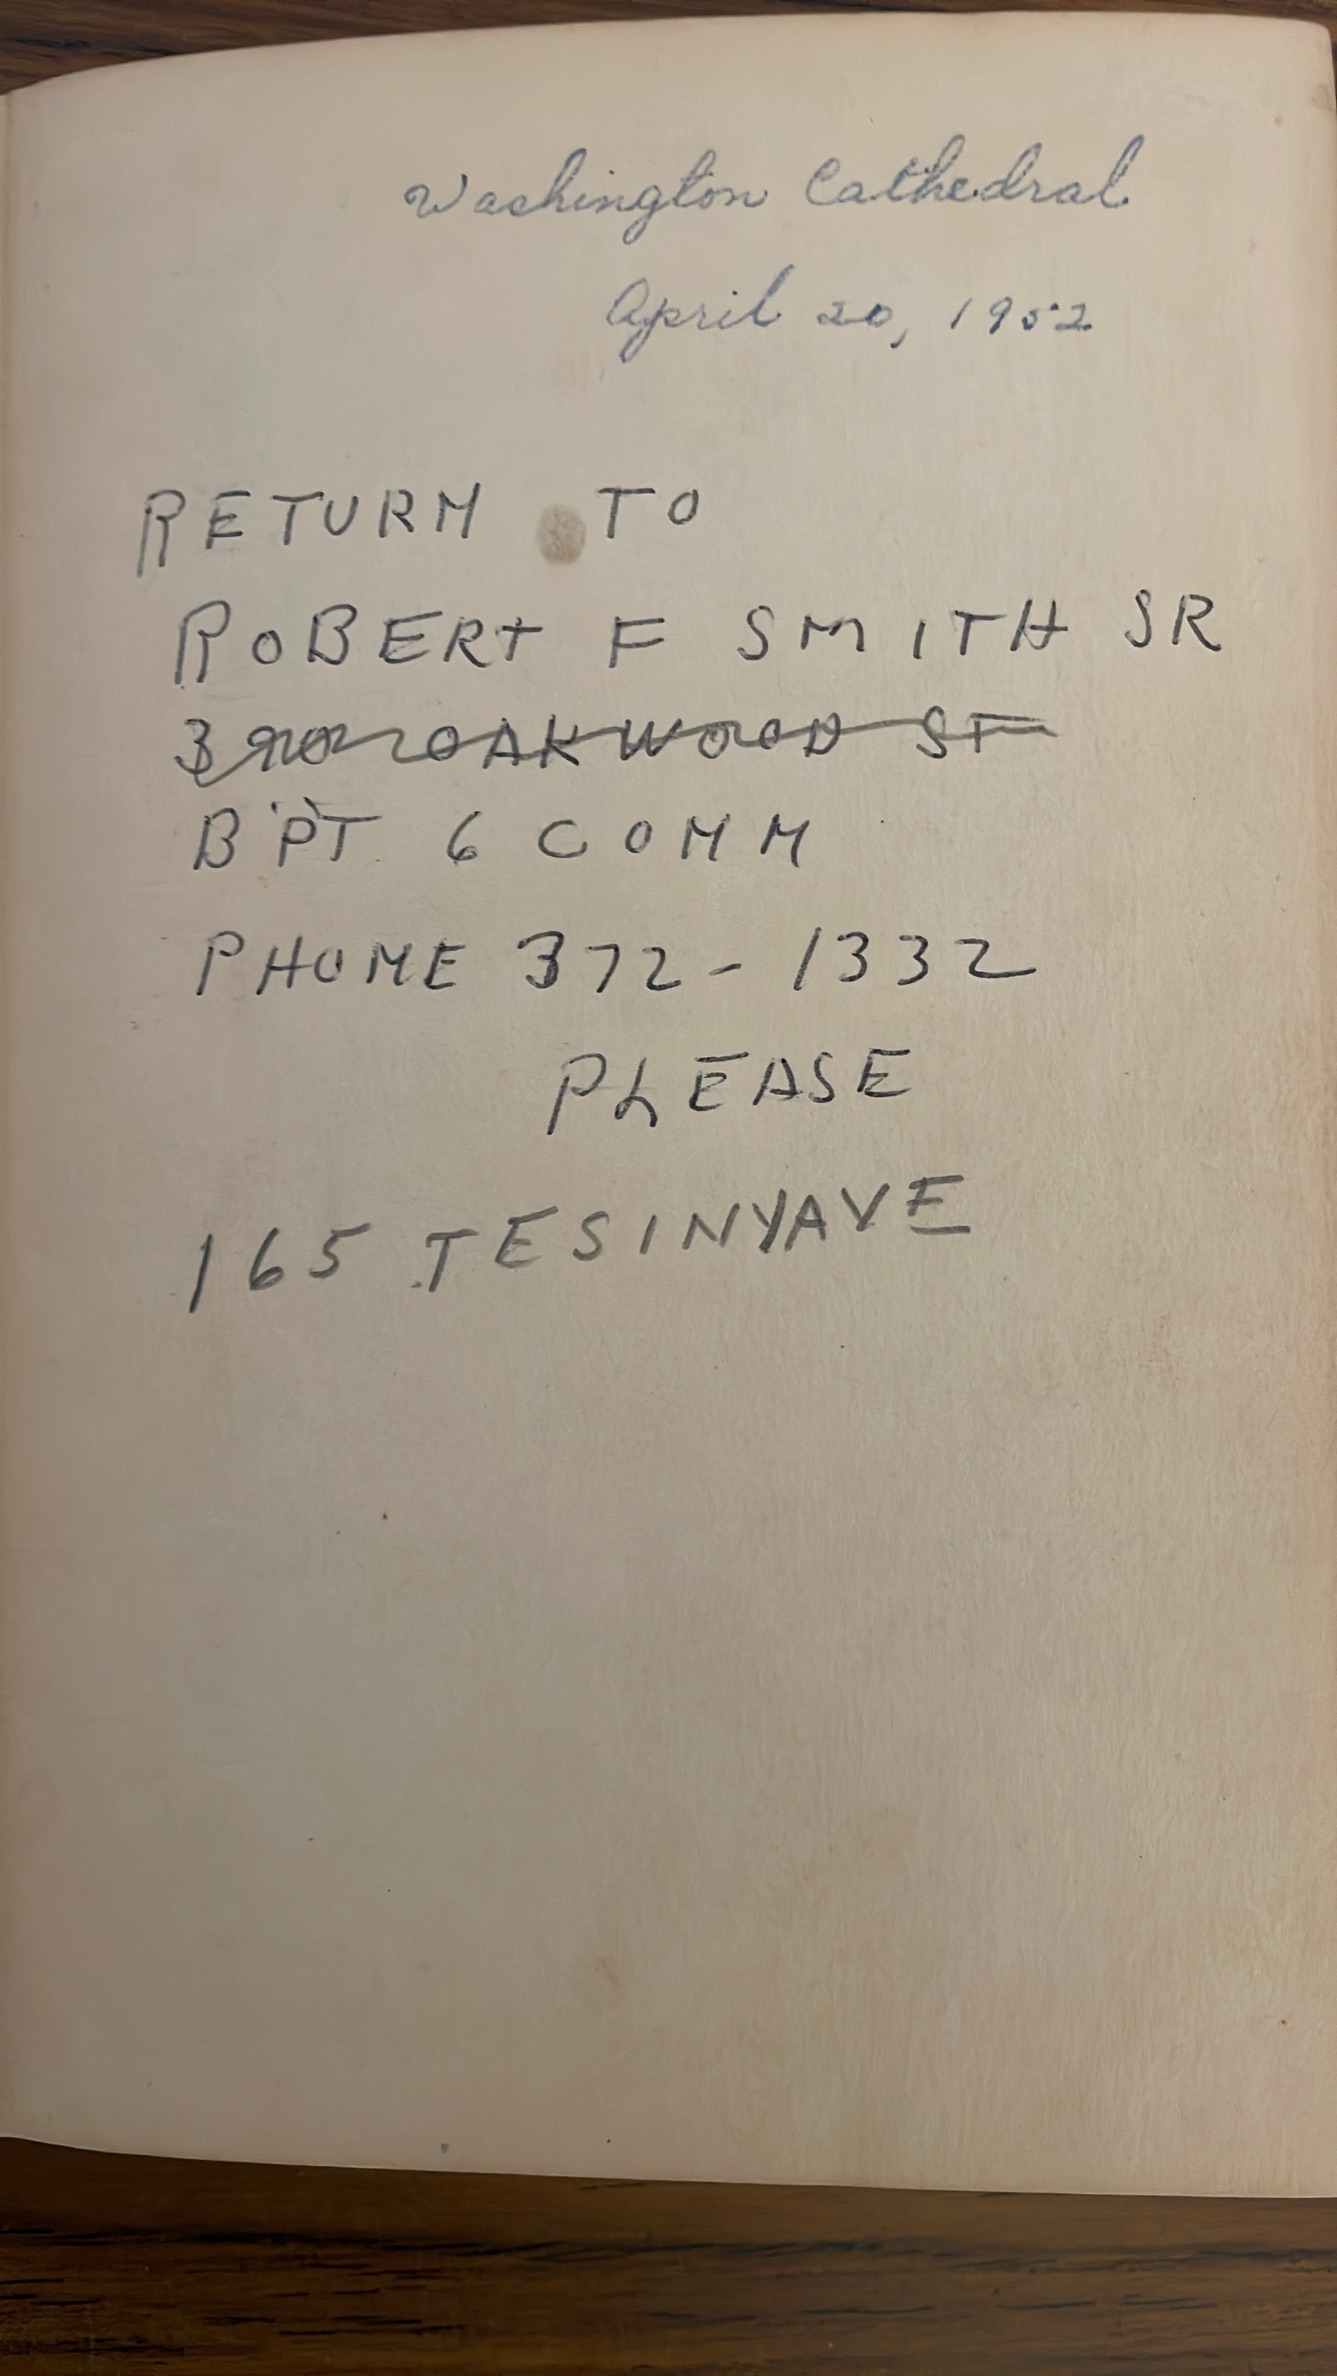 Washington Cathedral
April 20, 1952
RETURN TO
ROBERT F SMITH SR
OAKWOOD ST
BPT 6 CONN
PHONE 372-1332
PLEASE
165 TESINYAVE